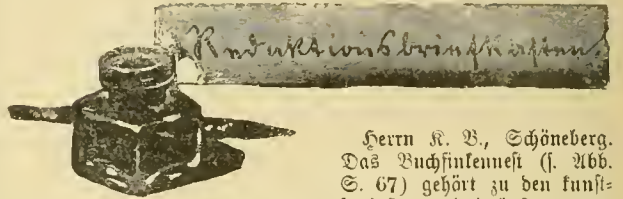 Redaktionsbriefkasten.
Herrn K. B., Schöneberg.
Das Buchfinkennest (s. Abb.
S. 67) gehört zu den kunst=